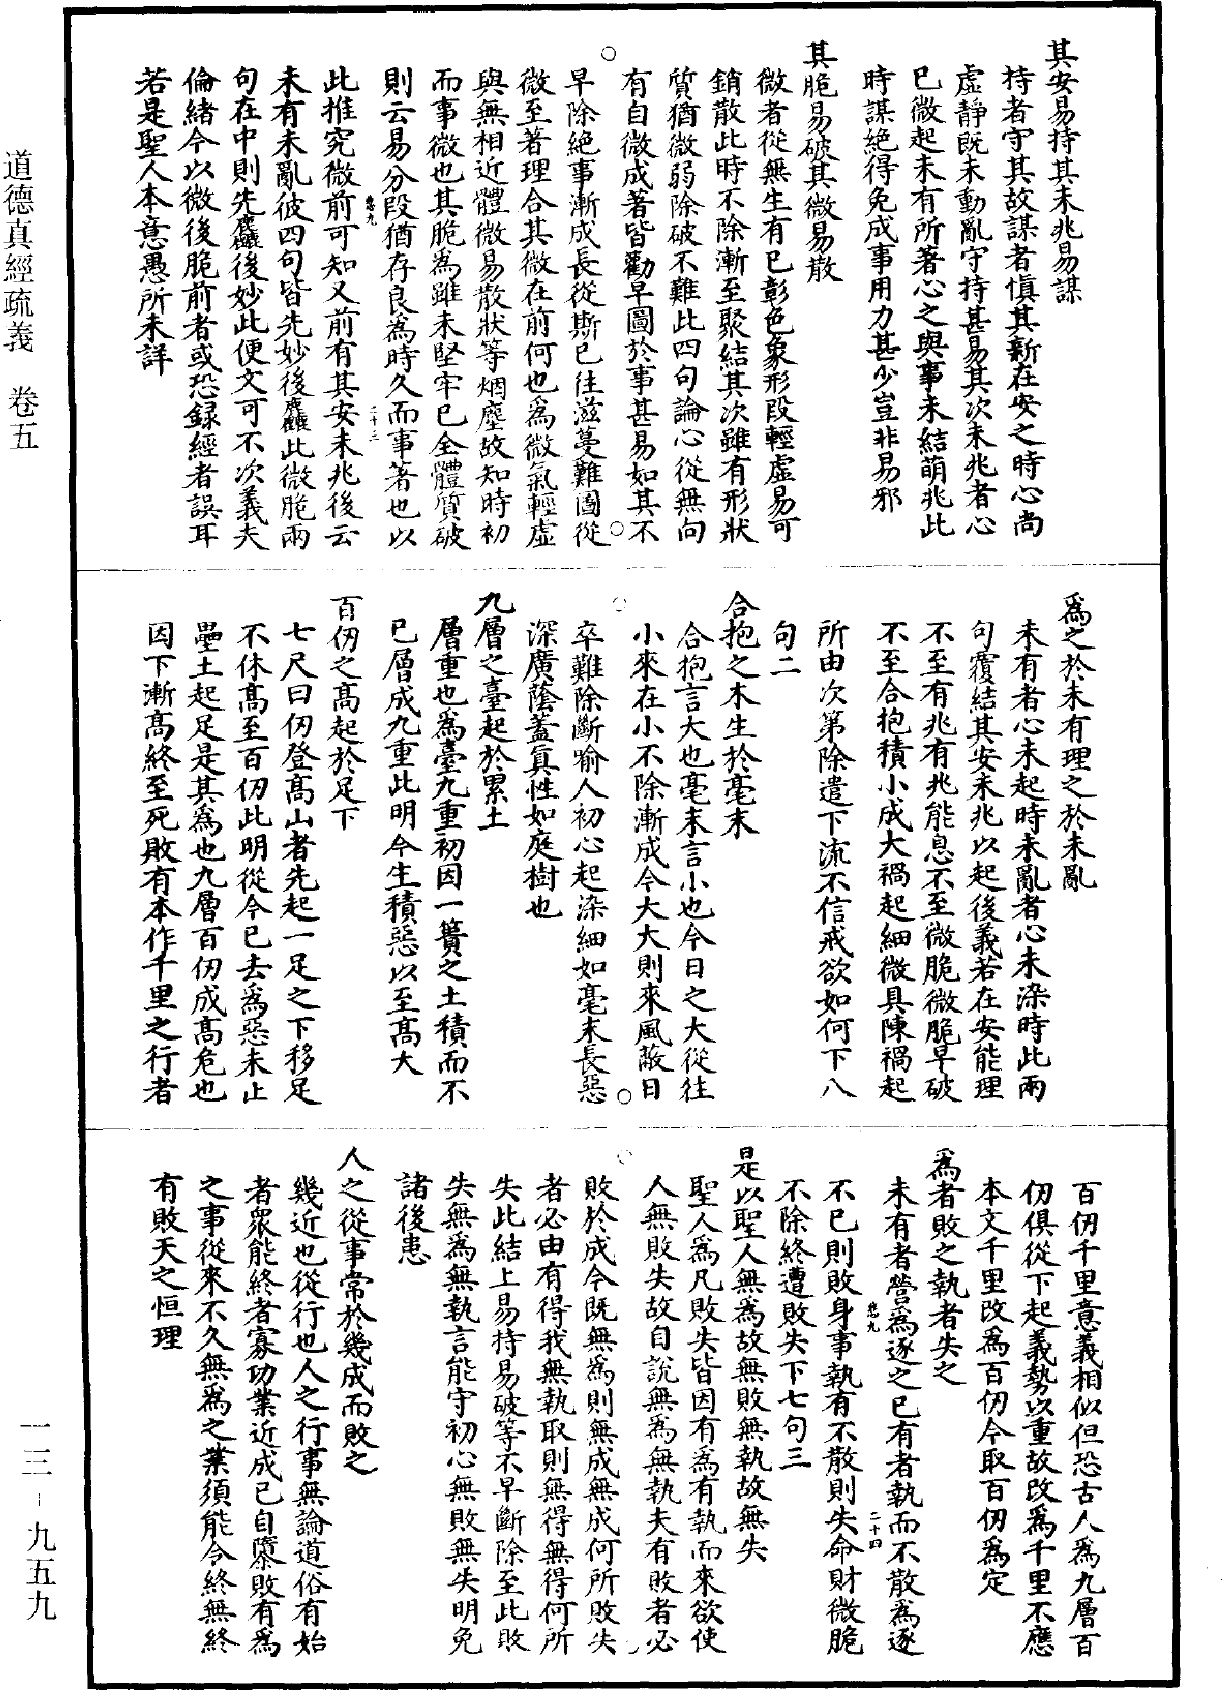 其安易持其未兆易謀
持者守其故謀者慎其新在安之時心尚
虛靜既未動亂守持甚易其次未兆者心
已微起未有所著心之與事未結萌兆此
時謀絕得免成事用力甚少豈非易邪
其脆易破其微易散
微者從無生有已彰色象形段輕虛易可
銷散此時不除漸至聚結其次雖有形狀
質猶微弱除破不難此四句論心從無向
有自微成著皆勸早圖於事甚易如其不
早除絕事漸成長從斯已往滋蔓難圖從
微至著理合其微在前何也為微氣輕虛
與無相近體微易散狀等烟塵故知時初
而事微也其脆為雖未堅牢已全體質破
則云易分段猶存良為時久而事著也以
悲九
二十三
此推究微前可知又前有其安未兆後云
未有未亂彼四句皆先妙後麤此微脆兩
句在中則先麤後妙此便文可不次義失
倫緒今以微後脆前者或恐録經者誤耳
若是聖人本意愚所未詳
為之於未有理之於未亂
未有者心未起時未亂者心未染時此兩
句覆結其安未兆以起後義若在安能理
不至有兆有兆能息不至微脆微脆早破
不至合抱積小成大禍起細微具陳禍起
所由次第除遣下流不信戒欲如何下八
句二
合抱之木生於毫末
合抱言大也毫末言小也今日之大從往
小來在小不除漸成今大大則來風蔽日
卒難除斷喻人初心起染細如毫末長惡
深廣蔭蓋真性如庭樹也
九層之臺起於累土
層重也為臺九重初因一簣之土積而不
已層成九重此明今生積惡以至高大
百仞之高起於足下
七尺曰仞登高山者先起一足之下移足
不休高至百仞此明從今已去為惡未止
壘土起足是其為也九層百仞成高危也
因下漸高終至死敗有本作千里之行者
百仞千里意義相似但恐古人為九層百
仞俱從下起義勢以重故改為千里不應
本文千里改為百仞今取百仞為定
為者敗之執者失之
未有者營為逐之已有者執而不散為逐
悲九
二十四
不已則敗身事執有不散則失命財微脆
不除終遭敗失下七句三
是以聖人無為故無敗無執故無失
聖人為凡敗失皆因有為有執而來欲使
人無敗失故自說無為無執夫有敗者必
敗於成今既無為則無成無成何所敗失
者必由有得我無執取則無得無得何所
失此結上易持易破等不早斷除至此敗
失無為無執言能守初心無敗無失明免
諸後患
人之從事常於幾成而敗之
幾近也從行也人之行事無論道俗有始
者眾能終者寡功業近成已自隳敗有為
之事從來不久無為之業須能令終無終
有敗天之恒理
道德真經疏義　卷五
一三-九五九